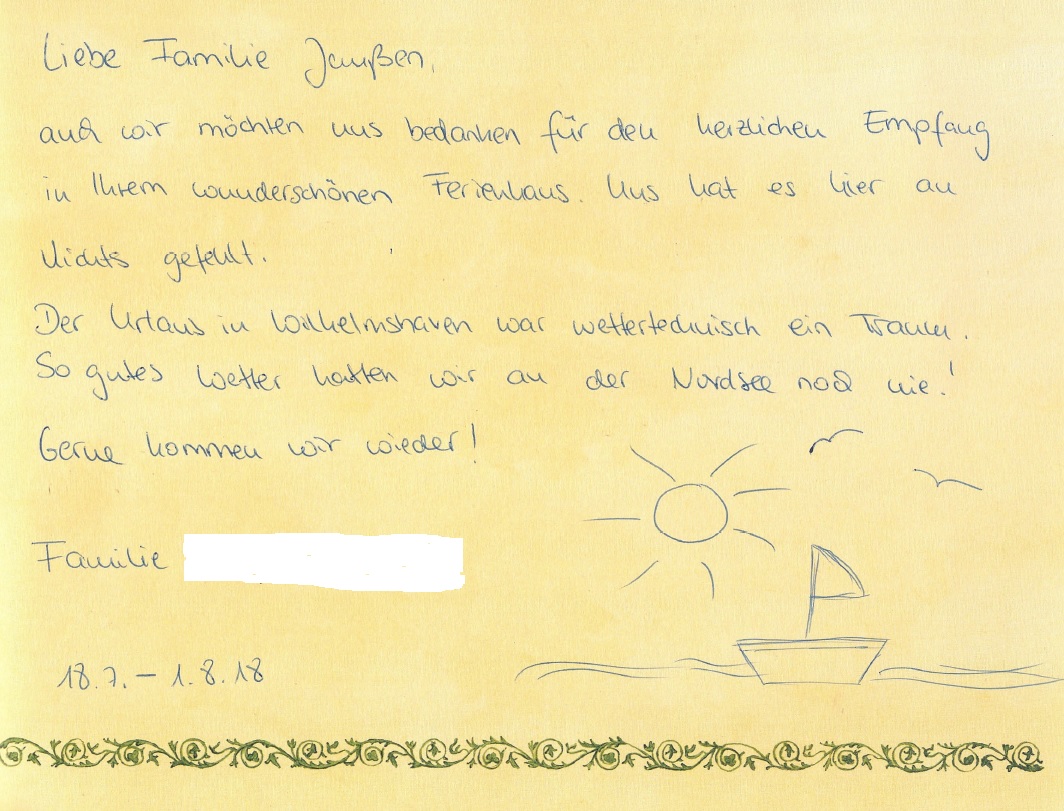 Liebe Familie Janßen,
auch wir möchten uns bedanken für den herzlichen Empfang
in Ihrem wunderschönen Ferienhaus. Uns hat es hier an
Nichts gefehlt.
Der Urlaub in Wilhelmshaven war wettertechnisch ein Traum.
So gutes Wetter hatten wir an der Nordsee noch nie!
Gerne kommen wir wieder!
Familie
18.7. – 1.8.18